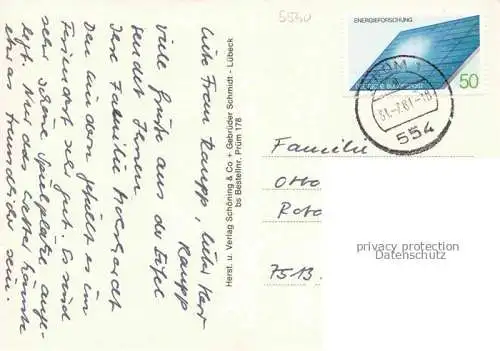 Liebe Frau Raupp, lieber Herr
Raupp
viele Grüße aus der Eifel
sendet Ihnen
Ihre Familie
Den Kindern gefällt es im
Feriendorf sehr gut. Es sind
sehr schöne Spielplätze ange-
legt. Nur das Wetter könnte
etwas freundlicher sein.
Herst. u. Verlag Schöning & Co + Gebrüder Schmidt - Lübeck
bs Bestellnr. Prüm 178
5540
ENERGIEFORSCHUNG
DEUTSCHE BUNDESPOST
50
PRÜM 1
31.-7.81-18
554
Familie
Otto
7513
privacy protection
Datenschutz